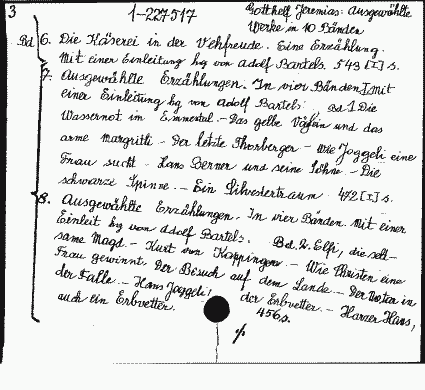 3
1-227517
Gotthelf Jeremias: Ausgewählte
Werke in 10 Bänden
Bd 6. Die Käserei in der Vehfreude. Eine Erzählung.
Mit einer Einleitung hg von Adolf Bartels 543 [I] s.
7. Ausgewählte Erzählungen. In vier Bänden I mit
einer Einleitung hg. von Adolf Bartels: Bd 1 Die
Wassernot im Emmental. - Das gelbe Vöglein und das
arme Margritli - Der letzte Thorberger - Wie Joggeli eine
Frau sucht - Hans Berner und seine Söhne - Die
schwarze Spinne - Ein Silvestertraum 472 [I] s.
8. Ausgewählte Erzählungen. In vier Bänden. Mit einer
Einleit hg von Adolf Bartels. Bd. 2. Elfi, die selt-
same Magd - Kurt von Koppingen - Wie Christen eine
Frau gewinnt. Der Besuch auf dem Lande - Der Notar in
der Falle - Hans Joggeli, der Erbvetter. - Harzer Hans,
auch ein Erbvetter. 456 s.